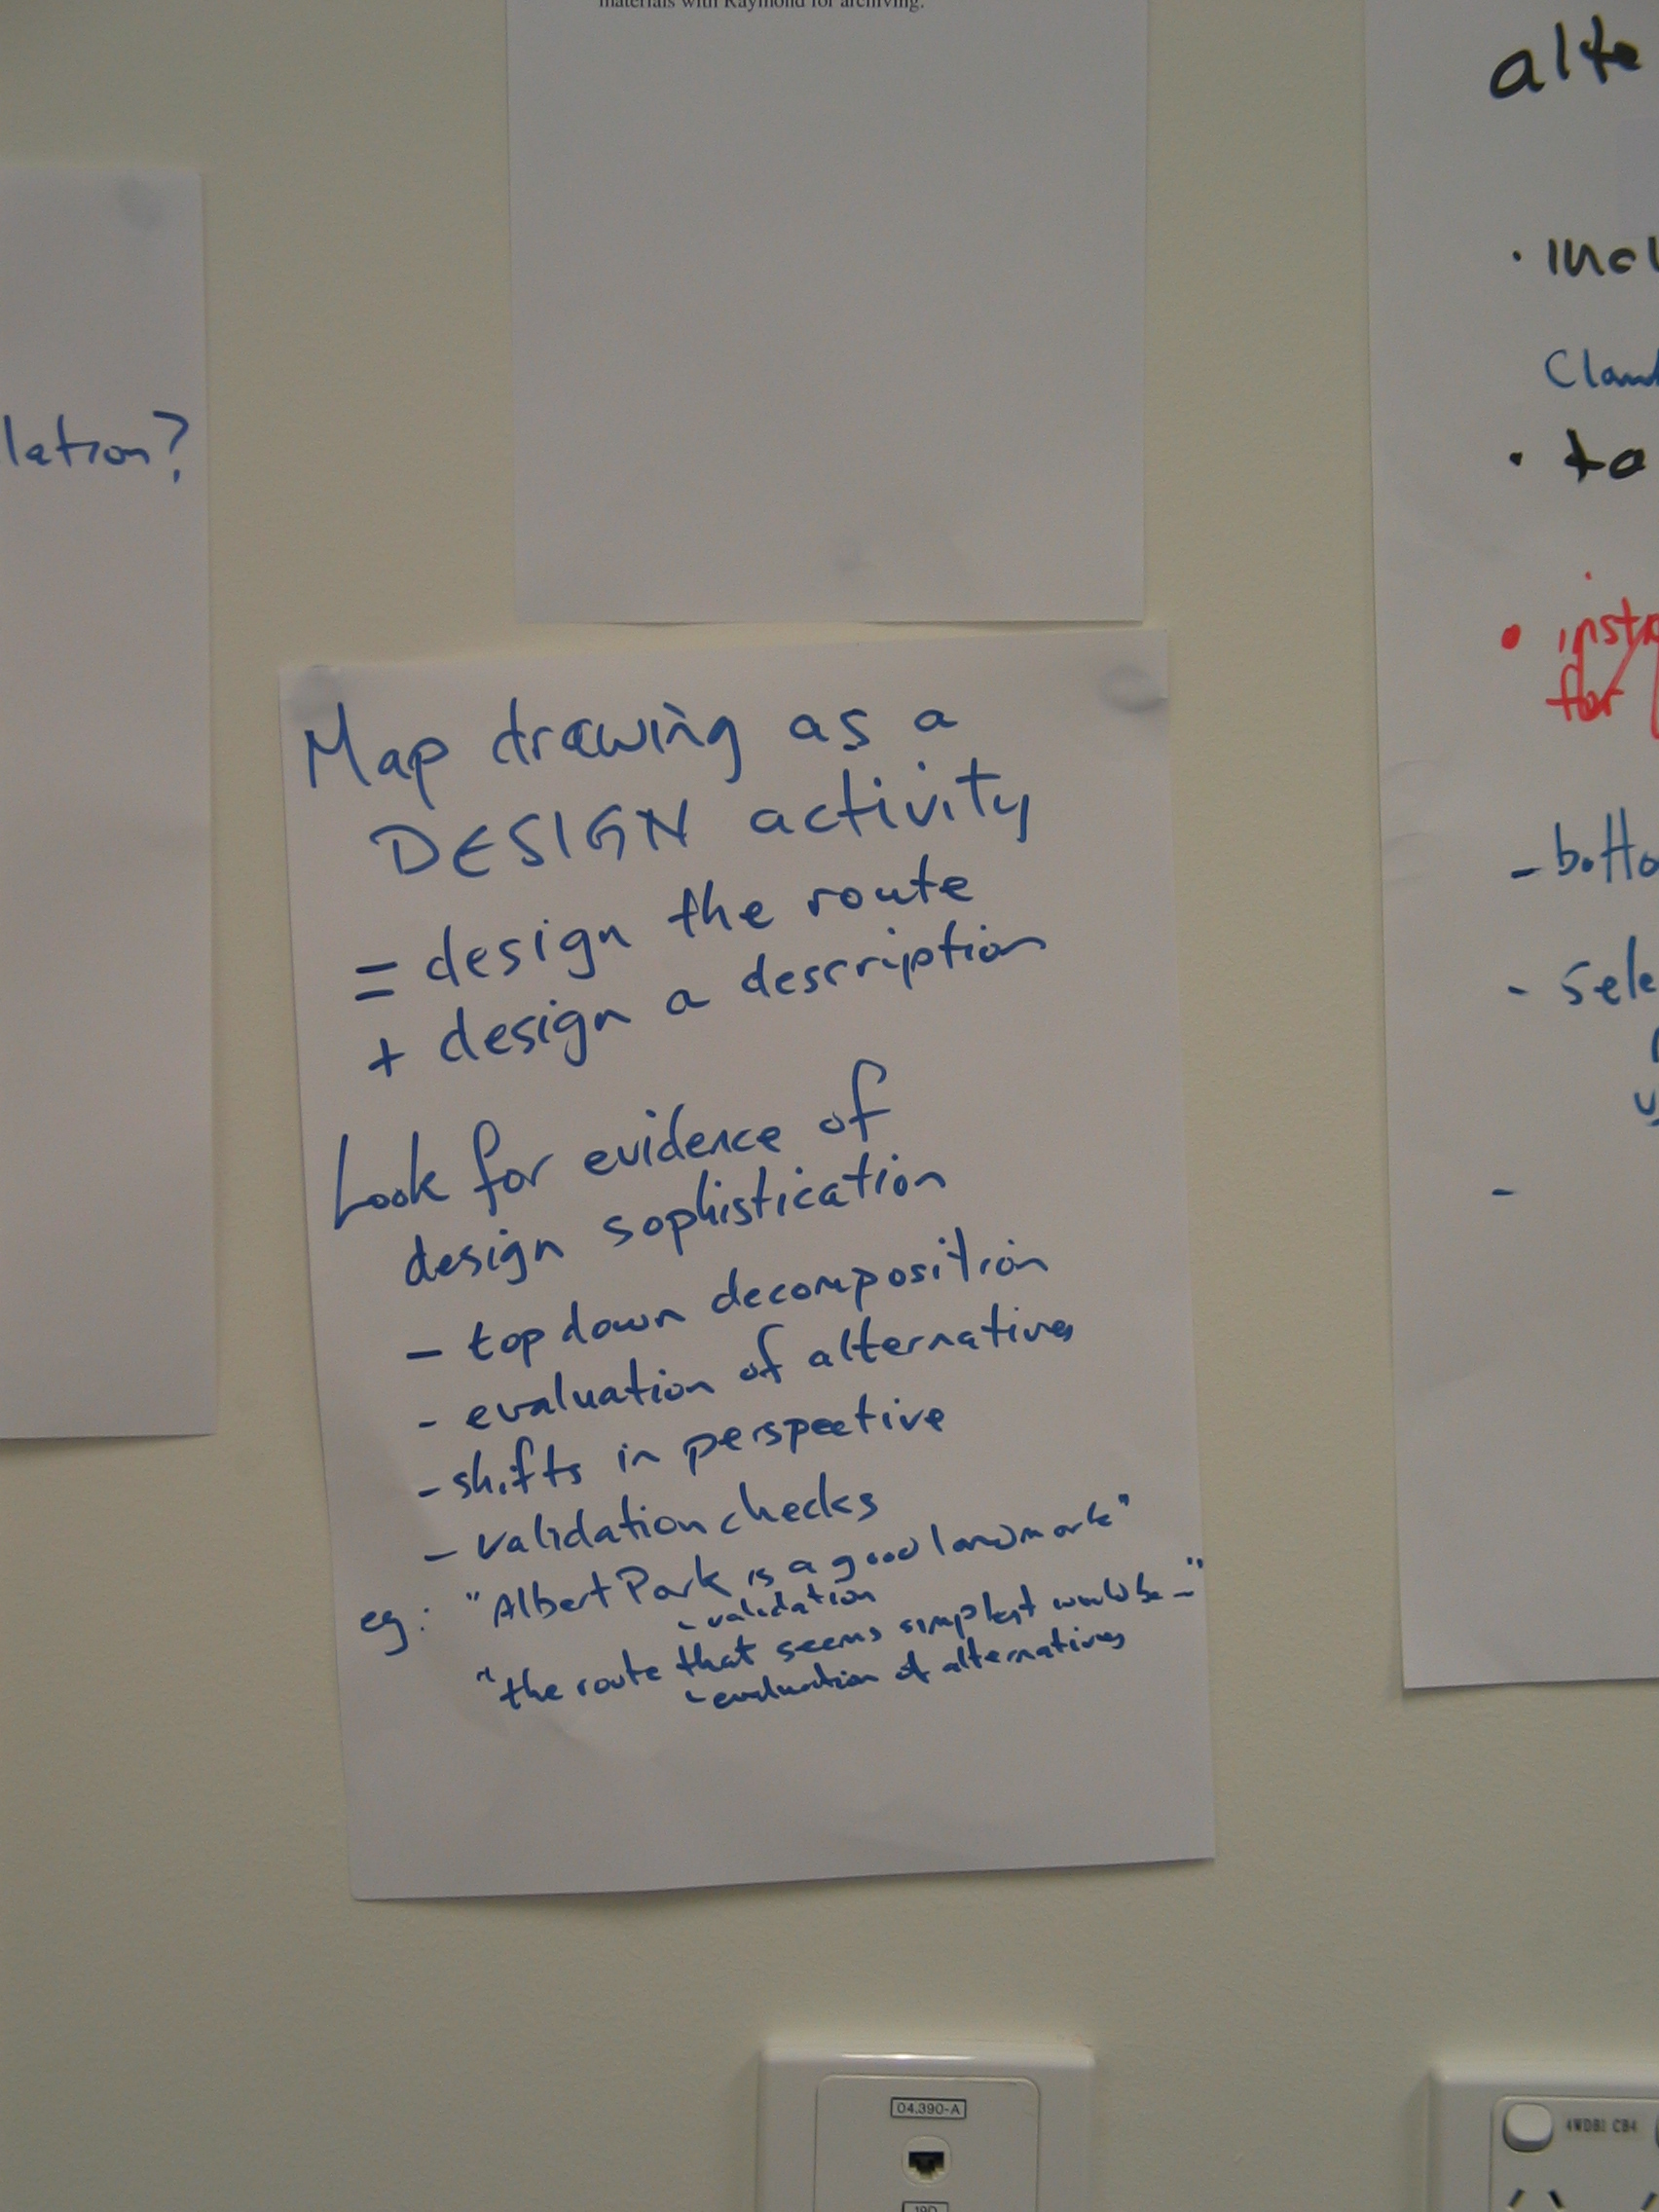 materials with Raymond for archiving.
lation?
Map drawing as a
DESIGN activity
= design the route
+ design a description
Look for evidence of
design sophistication
- top down decomposition
- evaluation of alternatives
- shifts in perspective
- validation checks
eg: "Albert Park is a good landmark"
- validation
"the route that seems simplest would be -"
- evaluation of alternatives
alte
• inc
Clau
• ta
• inst
for
- botto
- sele
-
04.390-A
19D
4WDB1 CB4